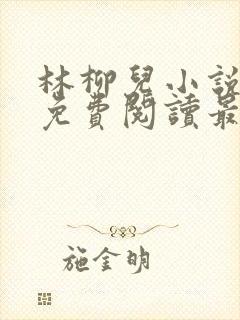 林柳兒小説
免費閱讀最
施金明